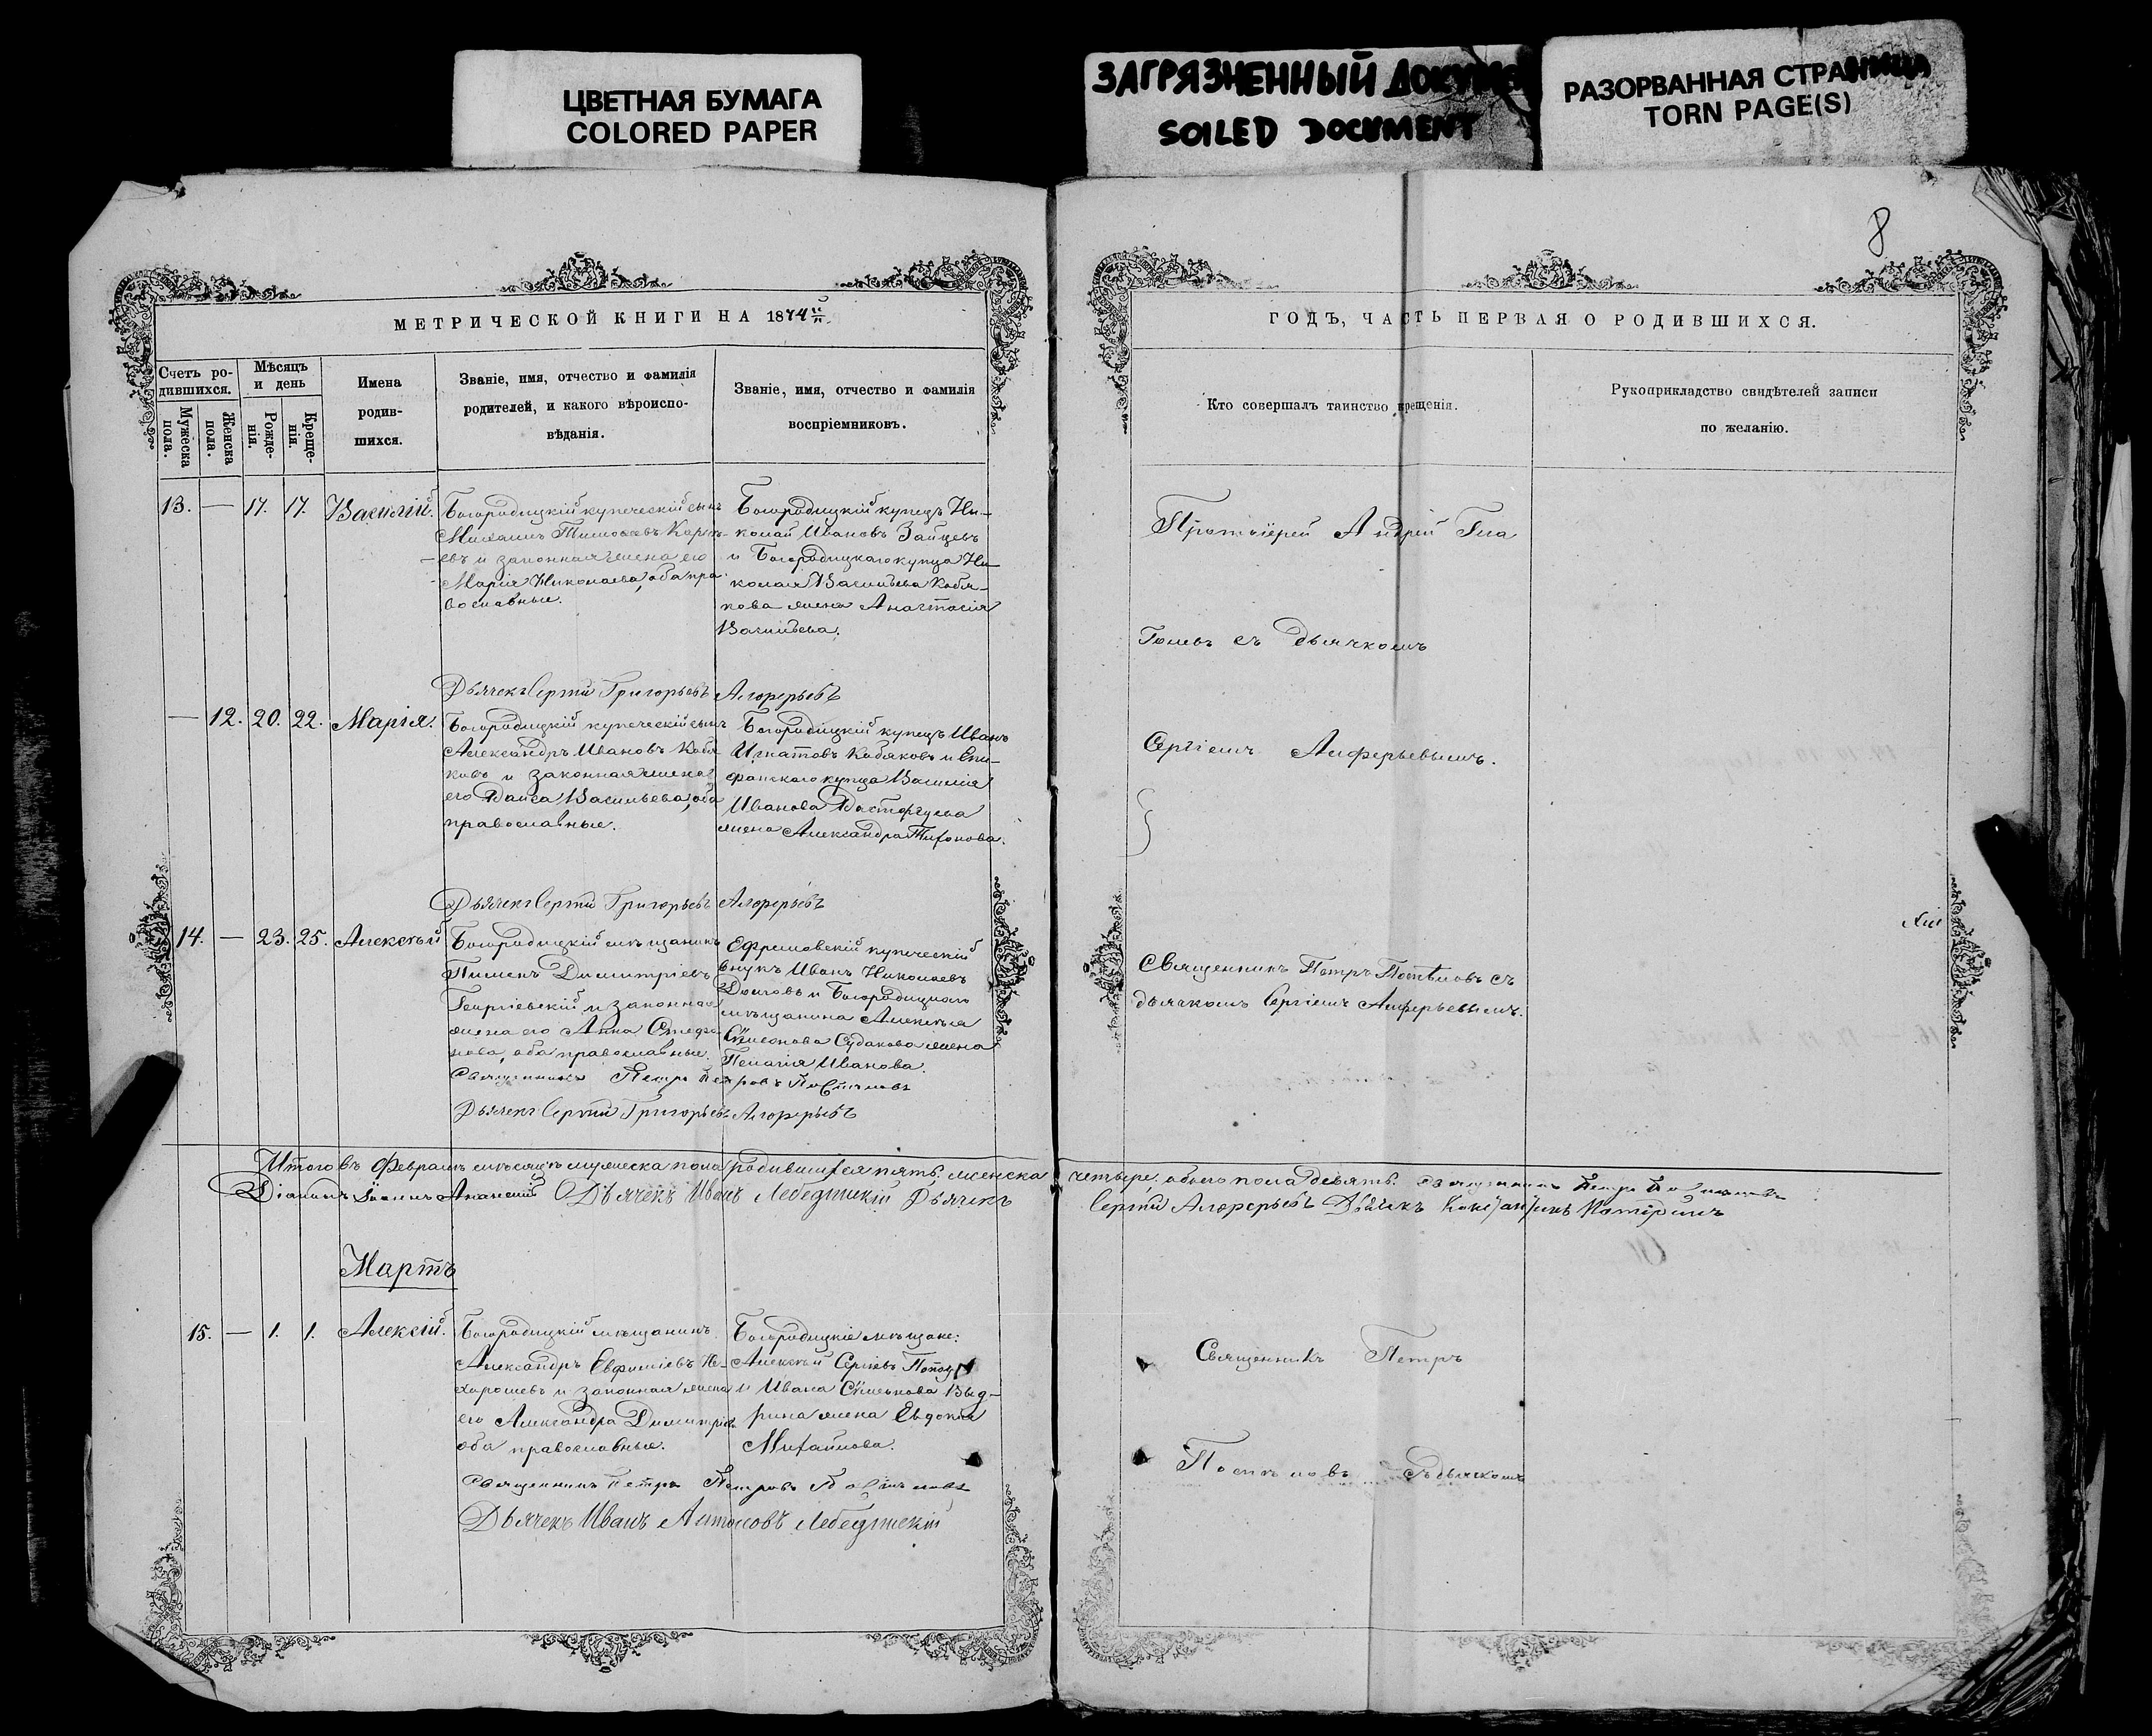 ЦВЕТНАЯ БУМАГА
COLORED PAPER
ЗАГРЯЗНЕННЫЙ
SOILED DOCUMENT
РАЗОРВАННАЯ СТРАНИЦА
TORN PAGE(S)
8
МЕТРИЧЕСКОЙ КНИГИ НА 1874 й
Счетъ ро-
дившихся.
Мужеска
пола.
Женска
пола.
Мѣсяцъ
и день
Рожде-
нія.
Креще-
нія.
Имена
родив-
шихся.
Званіе, имя, отчество и фамилія
родителей, и какого вѣроиспо-
вѣданія.
Званіе, имя, отчество и фамилія
воспріемниковъ.
13. — 17. 17. Василій.
Богородицкій купеческій сынъ
и законная жена его
Марія Николаева, оба пра-
вославные.
Богородицкій купецъ Ни-
колай Ивановъ Зайцевъ
и Богородицкаго купца Ни-
колая Васильева Кобя-
кова жена Анастасія
Васильева.
Дьячекъ Сергій Григорьевъ Алферьевъ
— 12. 20. 22. Марія.
Богородицкій купеческій сынъ
Александръ Ивановъ Кобя-
ковъ и законная жена
его Раиса Васильева, оба
православные.
Богородицкій купецъ Иванъ
Игнатовъ Кобяковъ и Епи-
фанскаго купца Василія
Иванова Расторгуева
жена Александра Тихонова.
Дьячекъ Сергій Григорьевъ Алферьевъ
14. — 23. 25. Алексѣй
Богородицкій мѣщанинъ
Пименъ Димитріевъ
Георгіевскій и законная
жена его Анна Стефа-
нова, оба православные.
Ефремовскій купеческій
внукъ Иванъ Николаевъ
Долговъ и Богородицкаго
мѣщанина Алексѣя
Симеонова Судакова жена
Пелагія Иванова.
Священникъ Петръ Петровъ
Дьячекъ Сергій Григорьевъ Алферьевъ
Итого въ Февралѣ мѣсяцѣ мужеска пола родившихся пять, женска
Діаконъ Іоаннъ Дьячекъ Иванъ Лебедянскій Дьячекъ
Мартъ
15. — 1. 1. Алексій.
Богородицкій мѣщанинъ
Александръ Евфиміевъ Не-
хорошевъ и законная жена
его Александра Димитріева
оба православные.
Богородицкіе мѣщане:
Алексѣй Сергіевъ
и Ивана Симеонова Выд-
рина жена Евдокія
Михайлова.
Священникъ Петръ Петровъ
Дьячекъ Иванъ Лебедянскій
ГОДЪ, ЧАСТЬ ПЕРВАЯ О РОДИВШИХСЯ.
Кто совершалъ таинство крещенія.
Рукоприкладство свидѣтелей записи
по желанію.
Протоіерей Андрей Гла
голевъ съ дьячкомъ
Сергіемъ Алферьевымъ.
Священникъ Петръ съ
дьячкомъ Сергіемъ Алферьевымъ.
четыре, обоего пола девять. Священникъ Петръ
Сергій Алферьевъ Дьячекъ
Священникъ Петръ
съ дьячкомъ